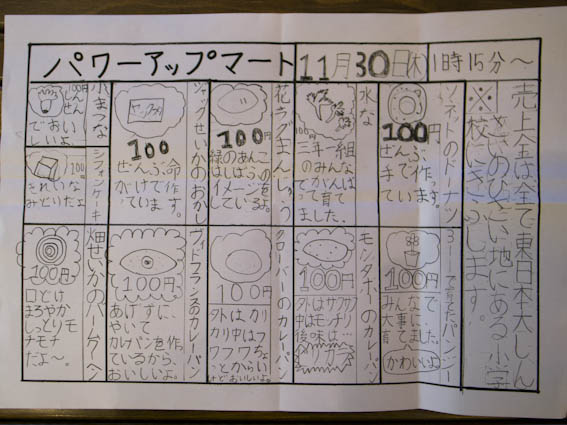 パワーアップマート
11月30日(水)
1時15分～
売上金は全て東日本大しん
さいのひさい地にある小学
※校にきふします。
ソネットのドーナツ
100円
ぜんぶ
手で作
ています。
水な
三年一組
のみんな
でがんば
って育て
ました。
花ラグまんじゅう
100円
緑のあんこ
はしばふを
イメージを
しているよ。
ジャックせいかのおかし
100
ぜんぶ命
がけて作っ
ています。
小まつな
100円
しんせん
でおい
しいよ。
シフォンケーキ
100
きれいな
みどりだよ
3-1で育てたパンジー
100円
みんなで
大事に
育てました。
かわいいよ
モンタボーのカレーパン
100円
外はサクサク
中はモチモチ
後味は…
クローバーのカレーパン
100円
外はカリ
カリ中はフ
ワフワちょ
っとからい
けどおいしいよ。
ヴィドフランスのカレーパン
100円
あげずに、
やいて
カレーパンを作っ
ているから、
おいしいよ。
畑せいかのバームクーヘン
100円
口どけ
まろやか
しっとりモ
ナモチ
だよ～。